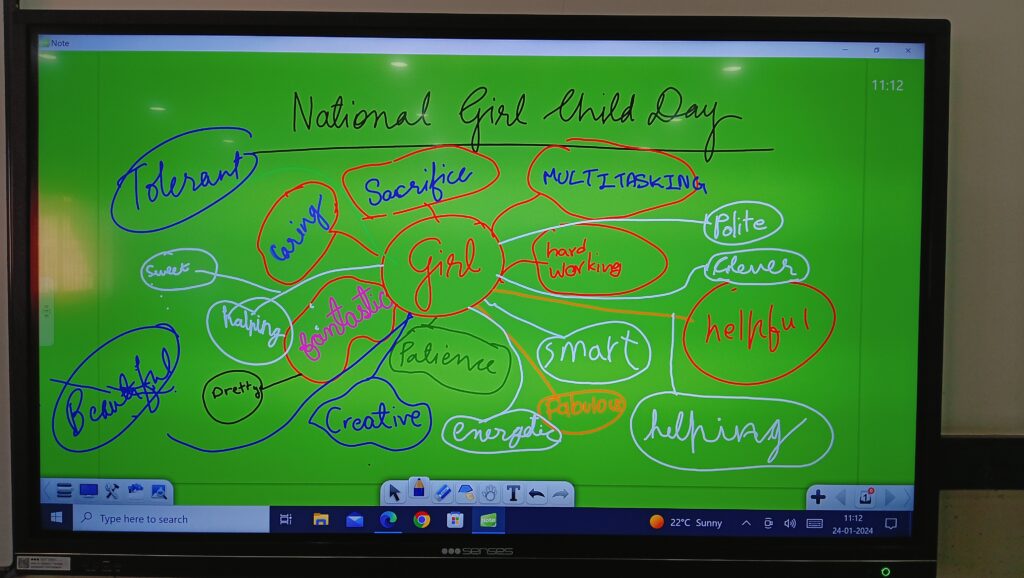 Note
11:12
National Girl Child Day
Tolerant
Sacrifice
MULTITASKING
Caring
Polite
Girl
hard
working
Sweet
Clever
fantastic
helpful
Kalping
Patience
smart
Beautiful
Pretty
Creative
energetic
Fabulous
helping
T
1
Type here to search
note
22°C Sunny
11:12
24-01-2024
senses